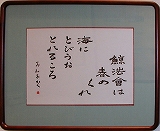 鯨法會は
春の
くれ
海に
とびうお
とれるころ